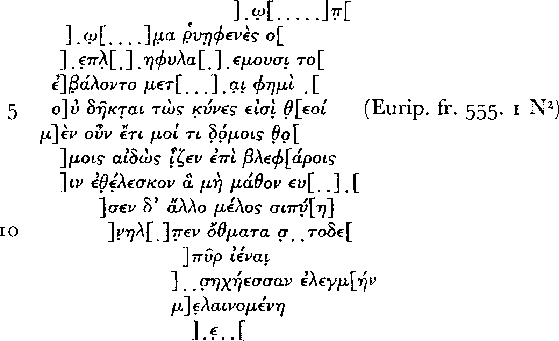 ] . ω̣[ . . . . . ]π̣[
] . ω̣[ . . . . ]μ̣α ῥ̣υηφενὲς ο[
] . ε̣πλ[ . ] . ηφυλα[ . ] . εμουσι̣ το[
ἐ]β̣άλοντο μετ[ . . . ] . α̣ι φημὶ . [
5 ο]ὐ δῆκται τὼς κ̣ύνες εἰσὶ̣ θ̣[εοί (Eurip. fr. 555. 1 N²)
μ]ὲν οὖν ἔτι μοί τι δ̣όμοις θ̣ο̣[
]μοις αἰδὼς ἷ̣ζεν ἐπὶ βλεφ[άροις
]ιν ἐ̣θέλεσκον ἃ μὴ μάθον ευ[ . . ] . [
]σεν δ’ ἄλλο μέλος σιπύ̣[η]
10 ]ν̣ηλ[ . ]π̣εν ὄθματα σ̣ . . τοδε[
]πῦρ ἰέναι̣
] . . σ̣ηχήεσσαν ἐλεγμ[ήν
μ]ε̣λαινομένη
] . ε̣ . . [